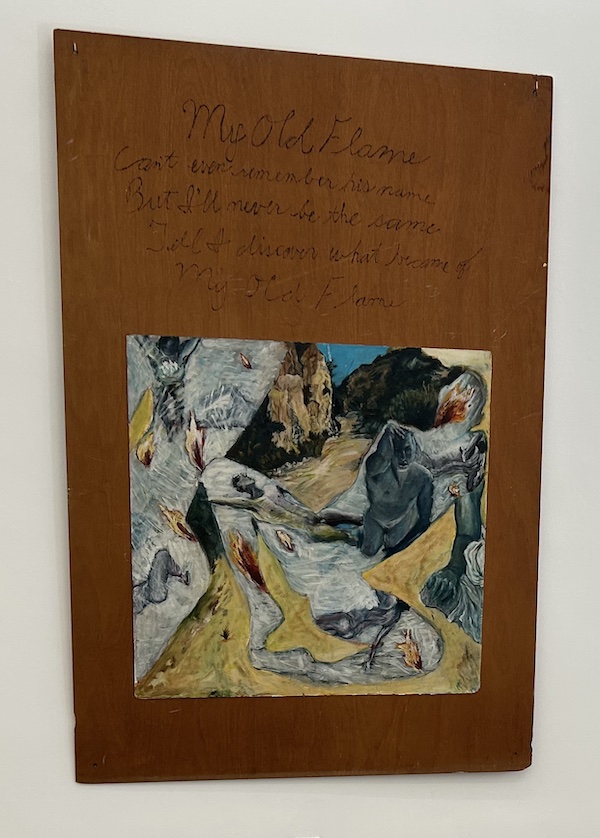 My Old Flame
Can't even remember his name
But I'll never be the same
Till I discover what became of
My Old Flame